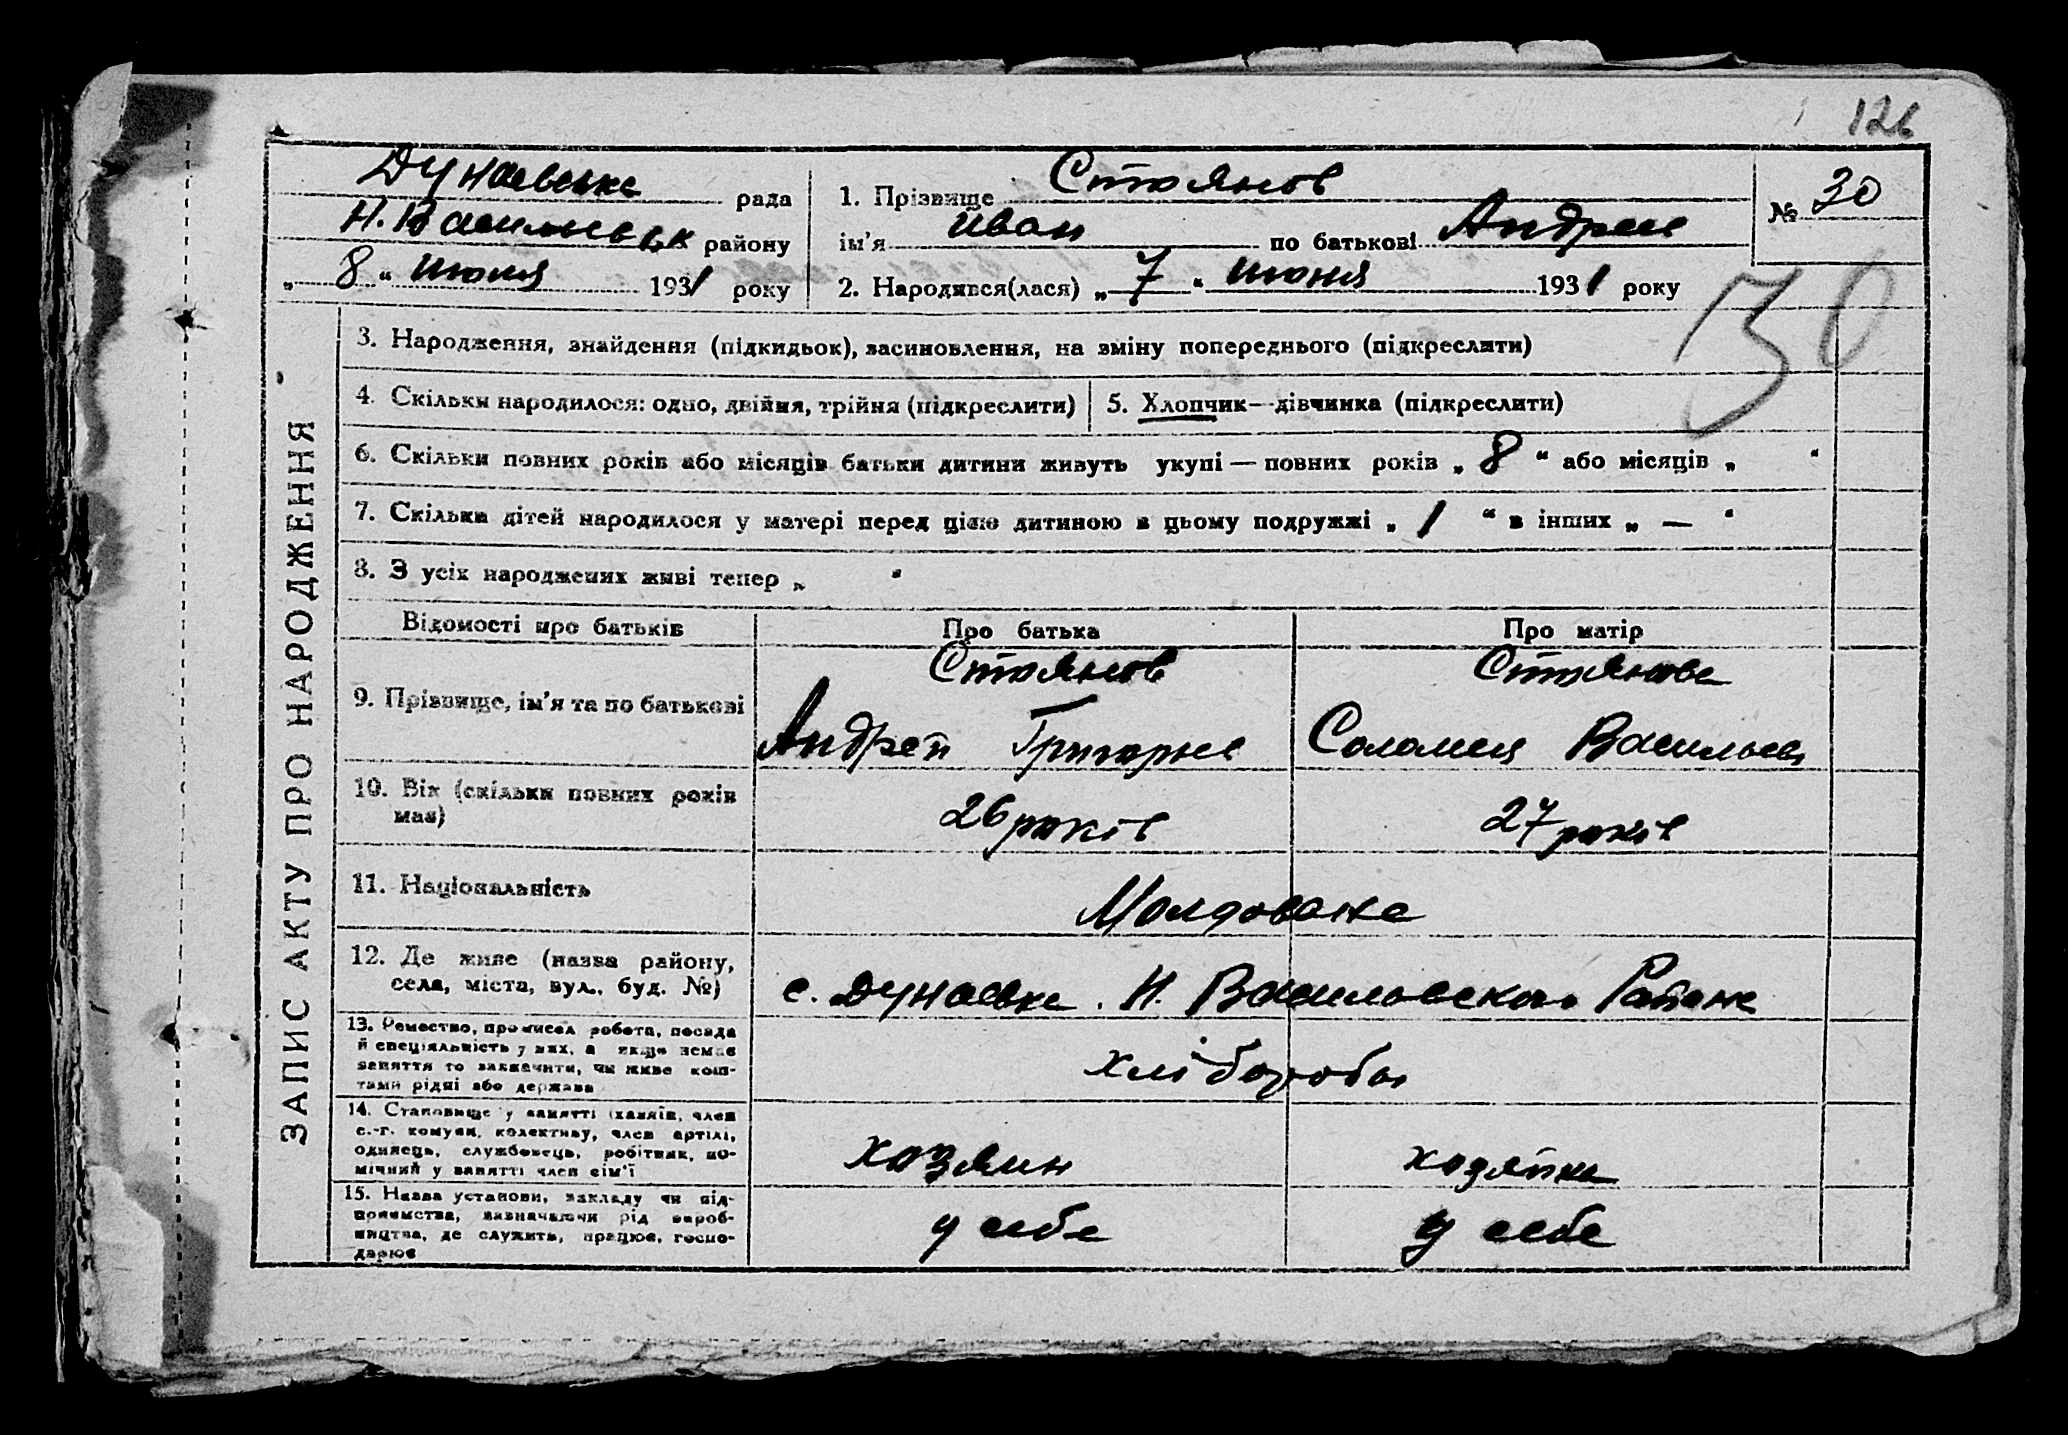 126
Дунаевська рада
Н. Васильевськ району
„ 8 “ июля 1931 року
1. Прізвище Стоянов
ім’я Иван по батькові Андрее
2. Народився(лася) „ 7 “ июня 1931 року
№ 30
30
ЗАПИС АКТУ ПРО НАРОДЖЕННЯ
3. Народження, знайдення (підкидьок), засиновлення, на зміну попереднього (підкреслити)
4. Скільки народилося: одно, двійня, трійня (підкреслити)
5. Хлопчик—дівчинка (підкреслити)
6. Скільки повних років або місяців батьки дитини живуть укупі — повних років „ 8 “ або місяців „ “
7. Скільки дітей народилося у матері перед цією дитиною в цьому подружжі „ 1 “ в інших „ — “
8. З усіх народжених живі тепер „ “
Відомості про батьків Про батька Про матір
9. Прізвище, ім’я та по батькові
Стоянов
Андрей Григорьев
Стоянова
Соломея Васильев
10. Вік (скільки повних років
має)
26 років
27 років
11. Національність
Молдоване
12. Де живе (назва району,
села, міста, вул., буд. №)
с. Дунаевке. Н. Васильевского Района
13. Ремество, промисел робота, посада
й спеціяльність у них, а якщо немає
заняття то зазначити, чи живе кош-
тами рідні або держава
хлібороби
14. Становище у занятті (хазяїн, член
с.-г. комуни, колективу, член артілі,
одинець, службовець, робітник, по-
мічний у занятті член сім’ї
хозяин
хозяйка
15. Назва установи, закладу чи під-
приємства, визначаючи рід вироб-
ництва, де служить, працює, госпо-
дарює
у себе
у себе